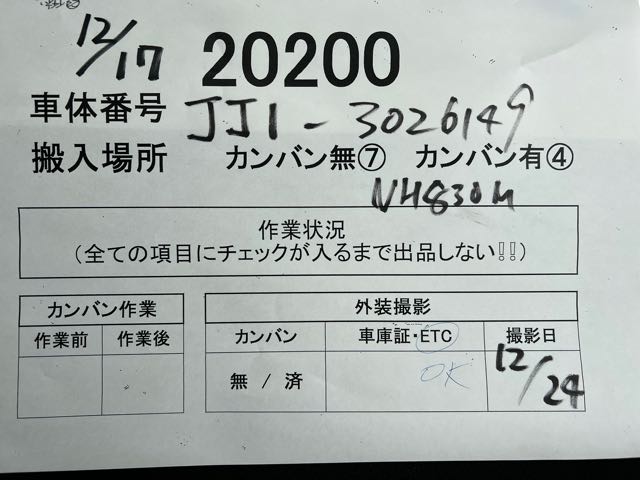 12/17 20200
車体番号 JJ1-3026149
搬入場所 カンバン無⑦ カンバン有④
NH830M
作業状況
(全ての項目にチェックが入るまで出品しない!!)
カンバン作業 外装撮影
作業前 作業後 カンバン 車庫証・ETC 撮影日
無 / 済 OK 12/24